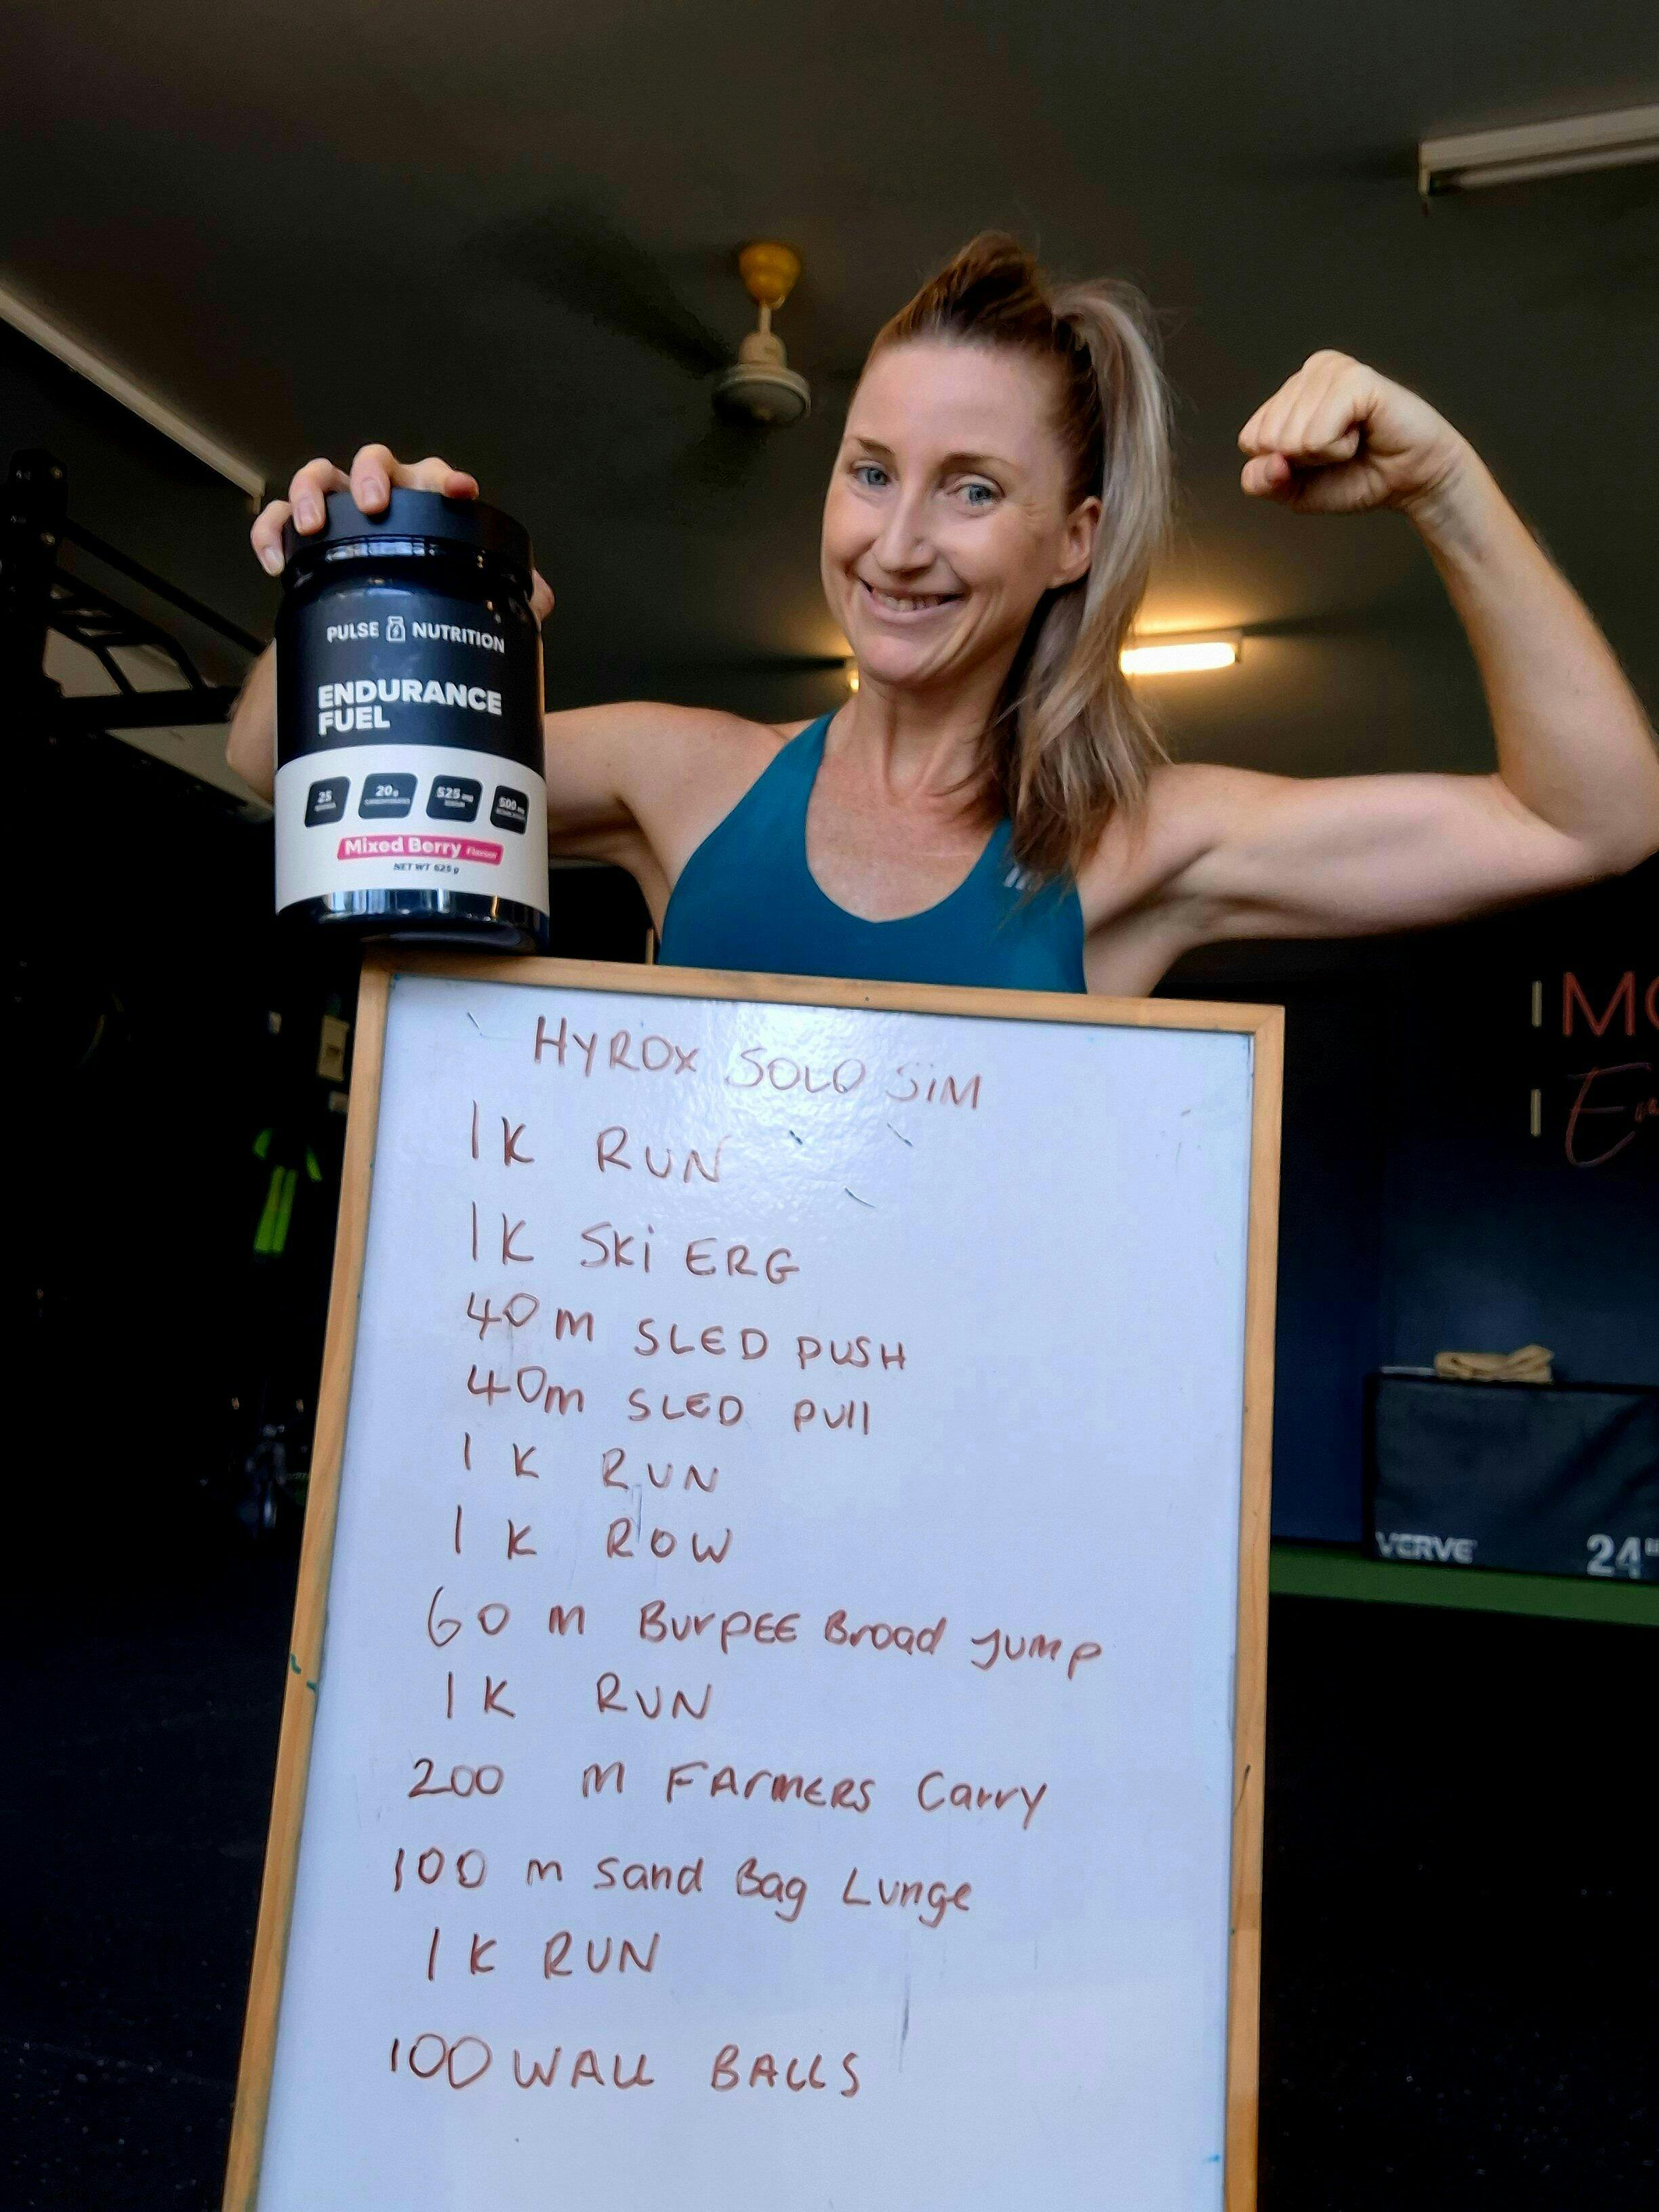 PULSE NUTRITION
ENDURANCE
FUEL
25 20g 525mg 500mg
Mixed Berry Flavour
NET WT 625g
HYROX SOLO SIM
1K RUN
1K SKi ERG
40m SLED PUSH
40m SLED PUll
1K RUN
1K ROW
60 m BurpEE Broad Jump
1K RUN
200 m FArmERS Carry
100 m Sand Bag Lunge
1K RUN
100 WALL BALLS
VERVE 24"